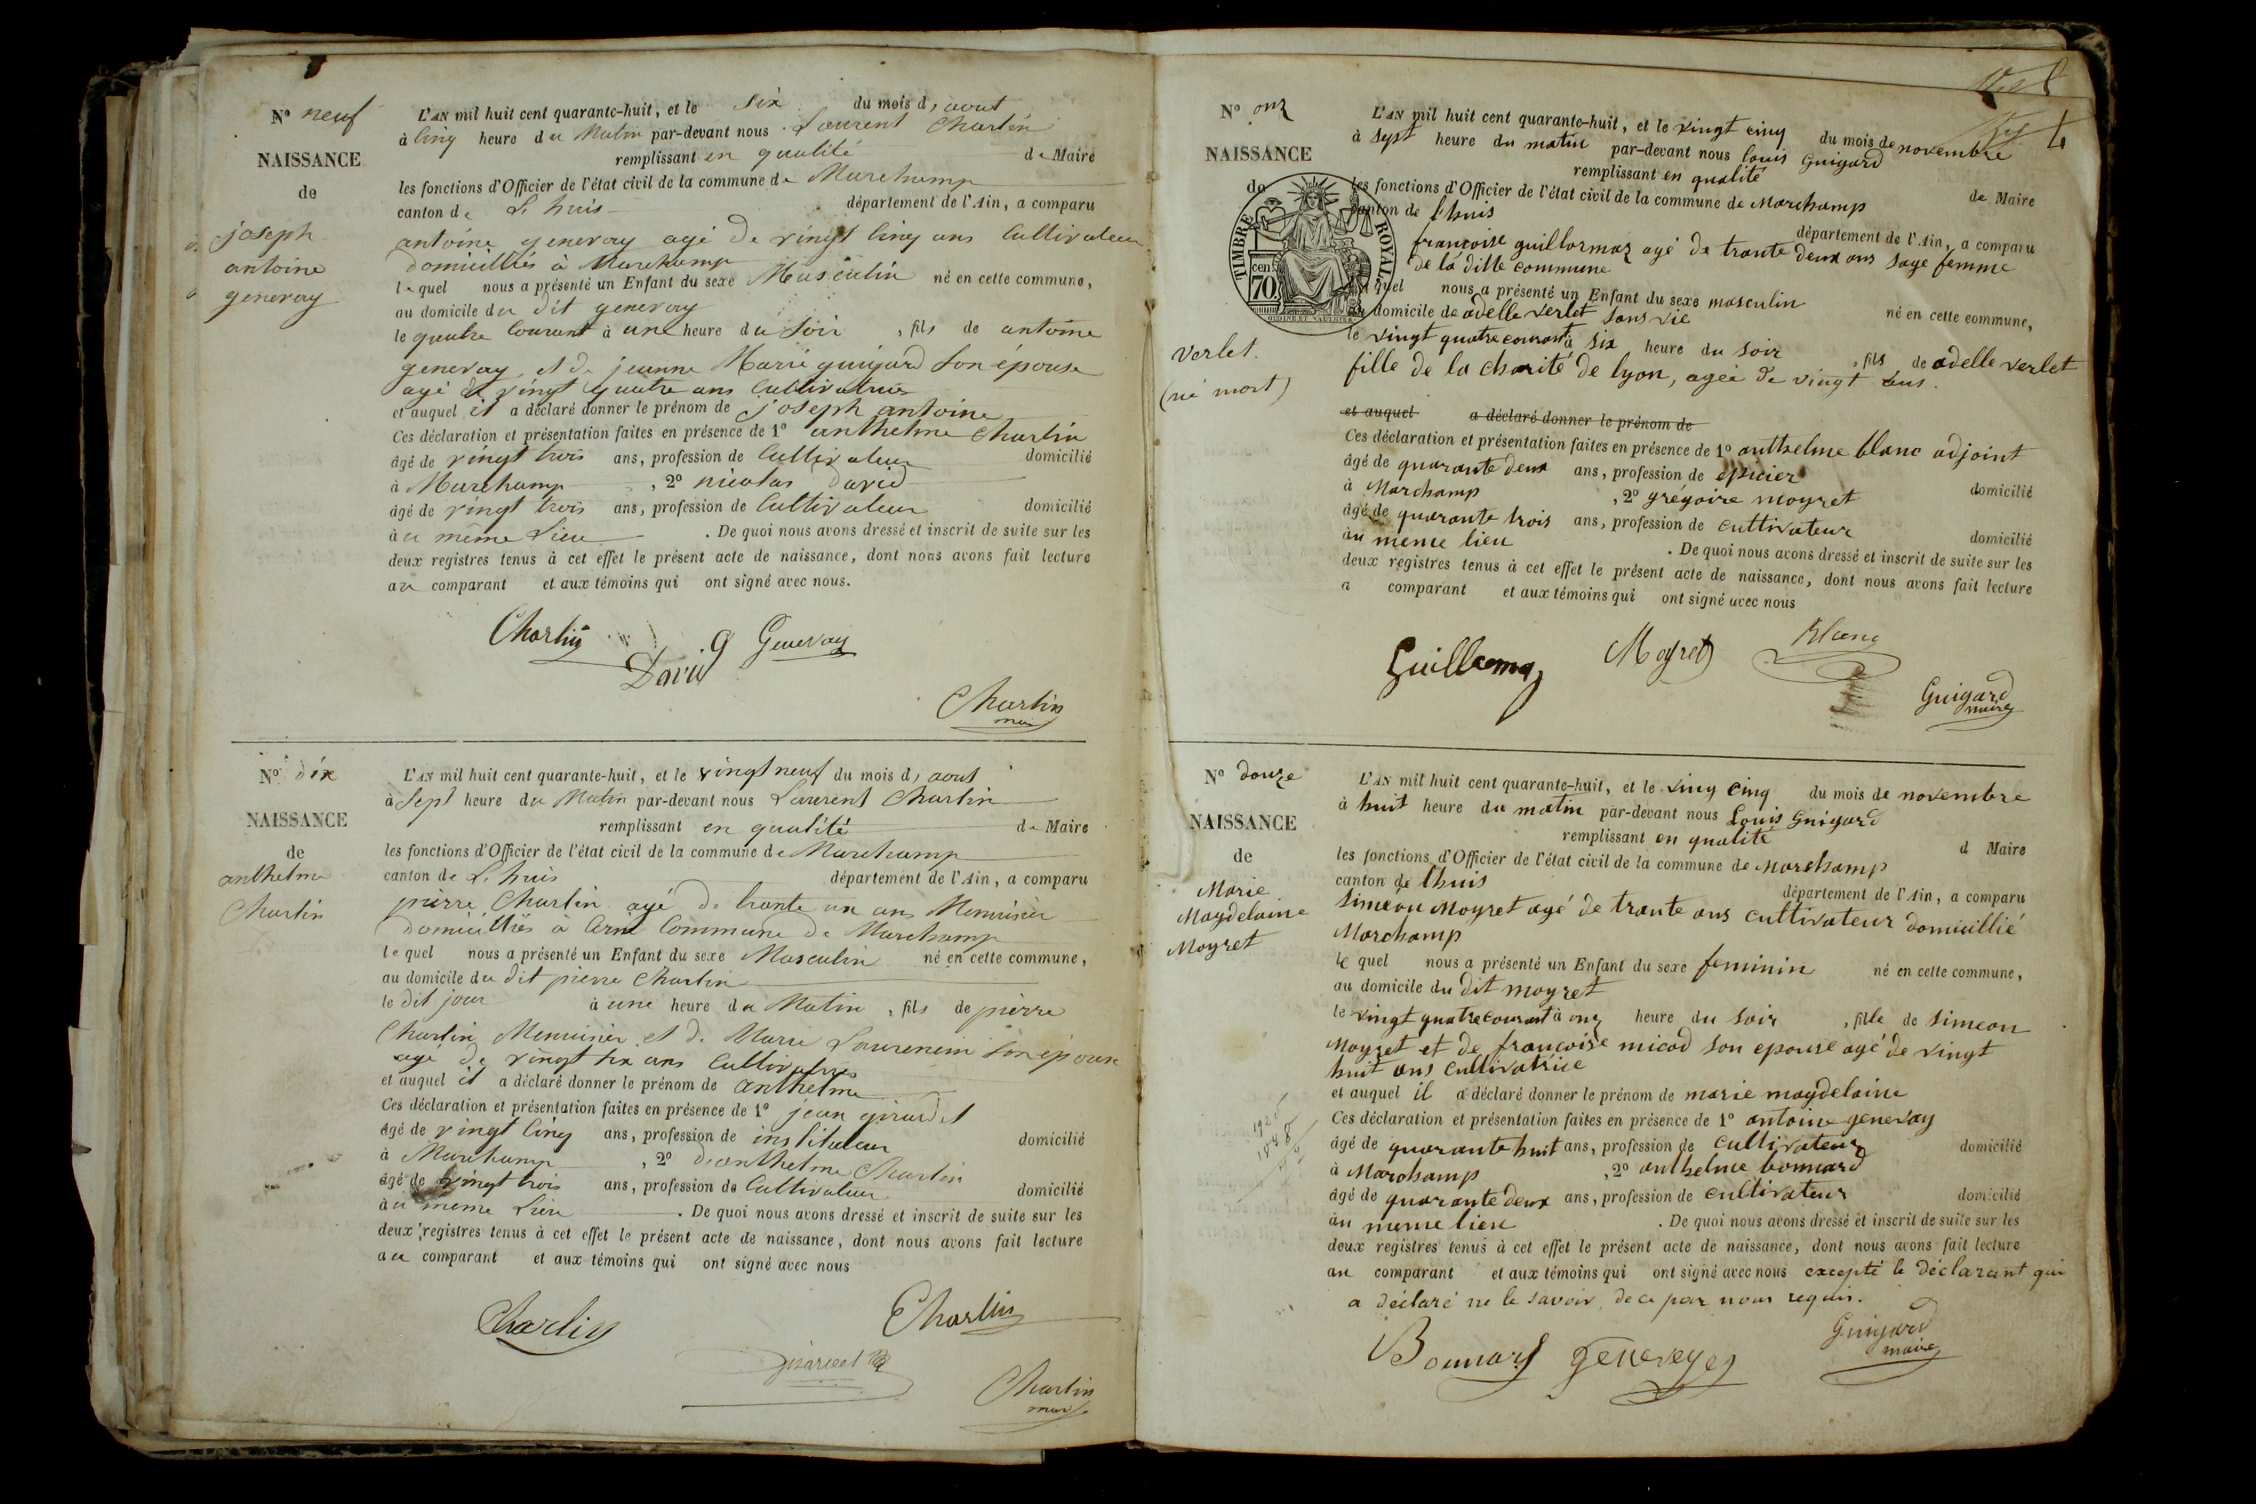 N° neuf
NAISSANCE
de
joseph
antoine
genevay
L'AN mil huit cent quarante-huit, et le six du mois d, aout
à cinq heure du Matin par-devant nous Laurent Charlin
remplissant en qualité de Maire
les fonctions d'Officier de l'état civil de la commune de Marchamp
canton de L. huis département de l'Ain, a comparu
antoine genevay agé de vingt cinq ans Cultivateur
domicilliés à Marchamp
lequel nous a présenté un Enfant du sexe Masculin né en cette commune,
au domicile du dit genevay
le quatre Courant à une heure du soir , fils de antoine
genevay et de jeanne Marie guigard son épouse
agé de vingt quatre ans Cultivatrice
et auquel il a déclaré donner le prénom de joseph antoine
Ces déclaration et présentation faites en présence de 1° anthelme Charlin
âgé de vingt trois ans, profession de Cultivateur domicilié
à Marchamp , 2° nicolas david
âgé de vingt trois ans, profession de Cultivateur domicilié
au même Lieu . De quoi nous avons dressé et inscrit de suite sur les
deux registres tenus à cet effet le présent acte de naissance, dont nous avons fait lecture
au comparant et aux témoins qui ont signé avec nous.
Charlin David g Genevay
Charlin
maire
N° dix
NAISSANCE
de
anthelme
Charlin
L'AN mil huit cent quarante-huit, et le vingt neuf du mois d, aout
à Sept heure du Matin par-devant nous Laurent Charlin
remplissant en qualité de Maire
les fonctions d'Officier de l'état civil de la commune de Marchamp
canton de L. huis département de l'Ain, a comparu
pierre Charlin agé de trante un ans Menuisier
domicilliés à Cerin Commune de Marchamp
lequel nous a présenté un Enfant du sexe Masculin né en cette commune,
au domicile du dit pierre Charlin
le dit jour à une heure du Matin , fils de pierre
Charlin Menuisier et de Marie son épouse
agé de vingt six ans Cultivatrice
et auquel il a déclaré donner le prénom de anthelme
Ces déclaration et présentation faites en présence de 1° jean girardet
âgé de vingt cinq ans, profession de instituteur domicilié
à Marchamp , 2° d'anthelme Charlin
âgé de vingt trois ans, profession de Cultivateur domicilié
au même Lieu . De quoi nous avons dressé et inscrit de suite sur les
deux registres tenus à cet effet le présent acte de naissance, dont nous avons fait lecture
au comparant et aux témoins qui ont signé avec nous
Charlin Charlin
Girardet
Charlin
maire
N° onz
NAISSANCE
de
verlet.
(né mort)
TIMBRE ROYAL
cen. 70
L'AN mil huit cent quarante-huit, et le vingt cinq du mois de novembre
à sept heure du matin par-devant nous louis Guigard
remplissant en qualité de Maire
les fonctions d'Officier de l'état civil de la commune de Marchamp
canton de lhuis département de l'Ain, a comparu
françoise guillormaz agé de trante deux ans sage femme
de la ditte commune
quel nous a présenté un Enfant du sexe masculin né en cette commune,
au domicile de adelle verlet sans vie
le vingt quatre courant à six heure du soir , fils de adelle verlet
fille de la charité de lyon, ageé de vingt ans.
et auquel a déclaré donner le prénom de
Ces déclaration et présentation faites en présence de 1° anthelme blanc adjoint
âgé de quarante deux ans, profession de epicier domicilié
à Marchamp , 2° grégoire moyret
âgé de quarante trois ans, profession de cultivateur domicilié
au meme lieu . De quoi nous avons dressé et inscrit de suite sur les
deux registres tenus à cet effet le présent acte de naissance, dont nous avons fait lecture
a comparant et aux témoins qui ont signé avec nous
Guillermaz Moyret Blanc
Guigard
maire
N° douze
NAISSANCE
de
Marie
Maydelaine
Moyret
L'AN mil huit cent quarante-huit, et le ving cinq du mois de novembre
à huit heure du matin par-devant nous Louis Guigard
remplissant en qualité d Maire
les fonctions d'Officier de l'état civil de la commune de Marchamp
canton de lhuis département de l'Ain, a comparu
Simeon Moyret agé de trante ans cultivateur domicillié
Marchamp
le quel nous a présenté un Enfant du sexe feminin né en cette commune,
au domicile du dit moyret
le vingt quatre courant à onz heure du soir , fille de simeon
Moyret et de françoise micod son epouse agé de vingt
huit ans cultivatrice
et auquel il a déclaré donner le prénom de marie maydelaine
Ces déclaration et présentation faites en présence de 1° antoine genevay
âgé de quarante huit ans, profession de cultivateur domicilié
à Marchamp , 2° anthelme bonnard
âgé de quarante deux ans, profession de cultivateur domicilié
au meme lieu . De quoi nous avons dressé et inscrit de suite sur les
deux registres tenus à cet effet le présent acte de naissance, dont nous avons fait lecture
au comparant et aux témoins qui ont signé avec nous excepté le déclarant qui
a déclaré ne le savoir de ce par nous requis.
Bonnard geneveyes Guigard
maire